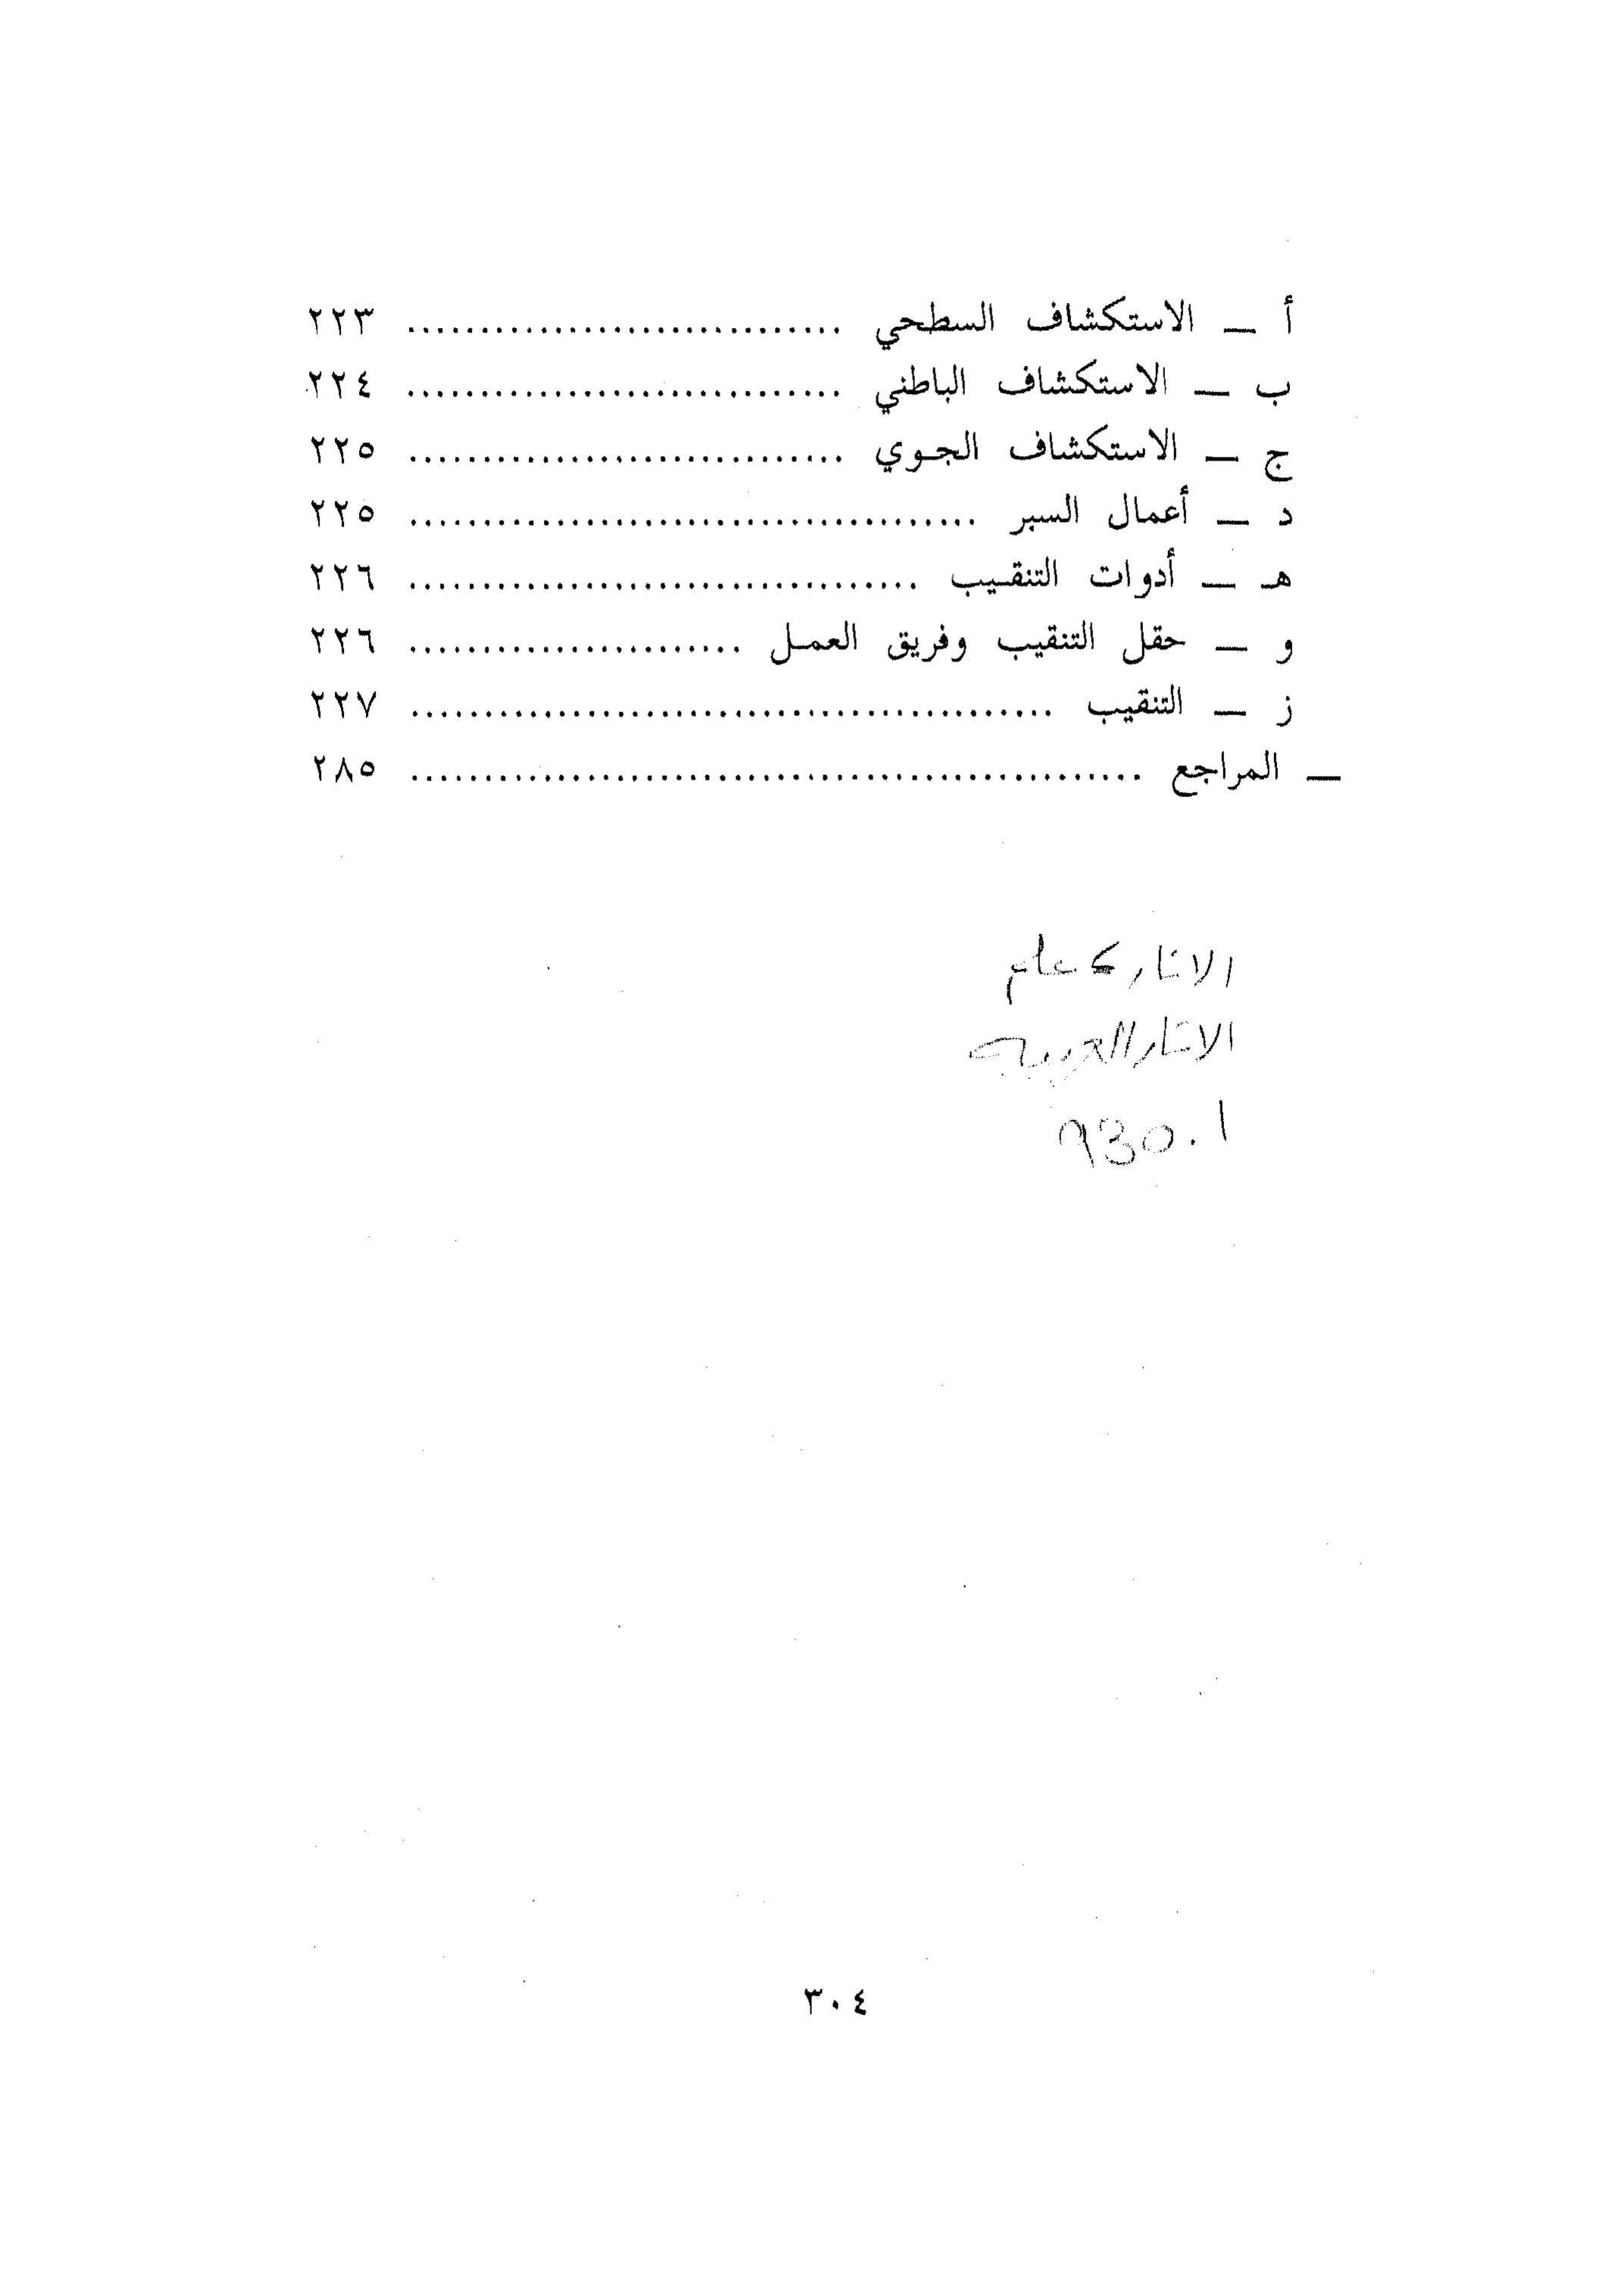 أ — الاستكشاف السطحي .............................. ٢٢٣
ب — الاستكشاف الباطني .............................. ٢٢٤
ج — الاستكشاف الجوي .............................. ٢٢٥
د — أعمال السبر ....................................... ٢٢٥
هـ — أدوات التنقيب ................................... ٢٢٦
و — حقل التنقيب وفريق العمل ....................... ٢٢٦
ز — التنقيب ............................................ ٢٢٧
— المراجع .................................................. ٢٨٥
الاثار، علم
الاثار العربية
930.1
٣٠٤